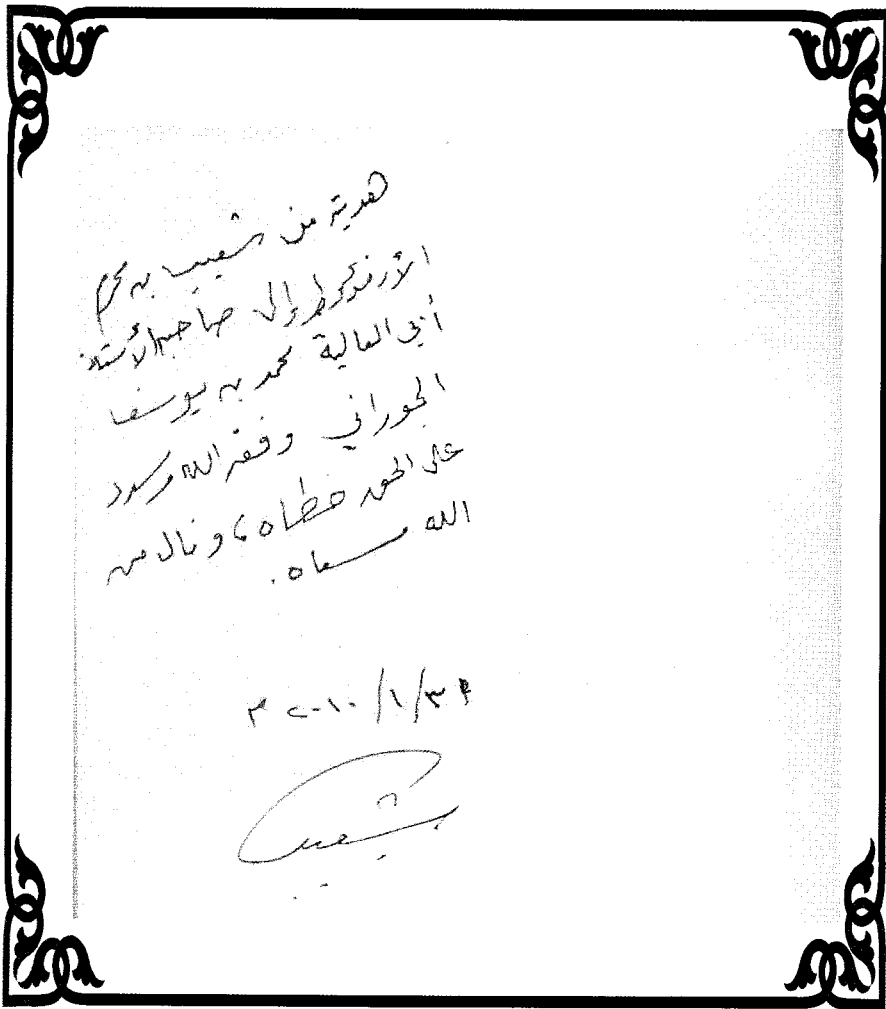 هدية من شعيب بن محرم
الأرنؤوط إلى صاحبه الأستاذ
أبي العالية محمد بن يوسف
الجوراني وفقه الله وسدد
على الحق خطاه، ونال من
الله مسعاه.
٢٠١٠/١/٣ م
شعيب